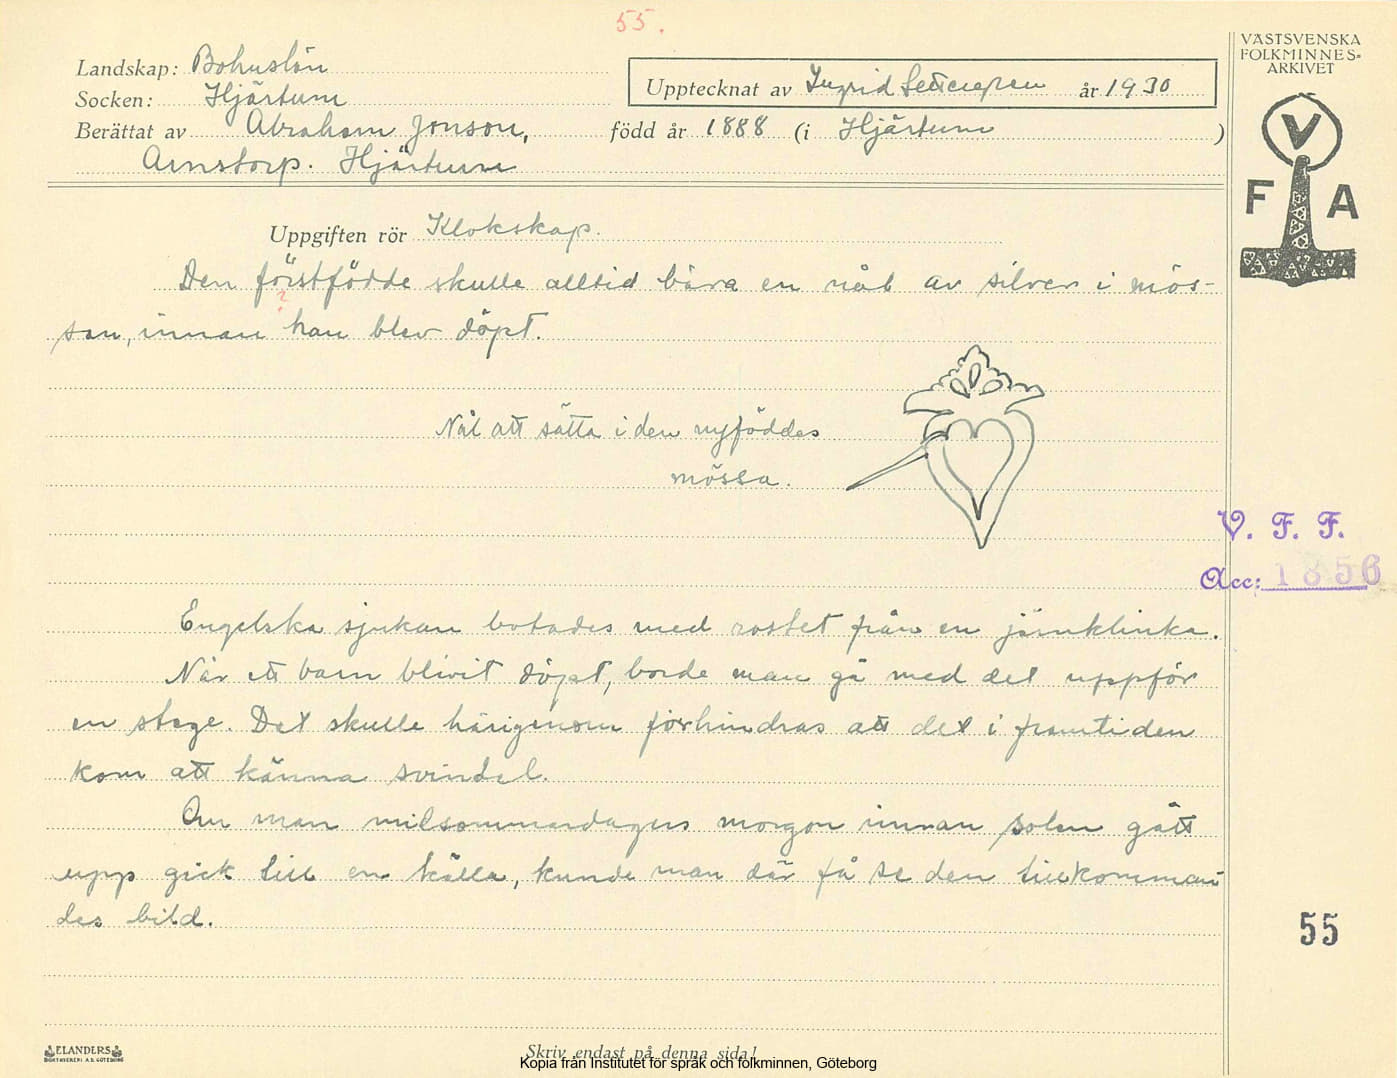 55.
VÄSTSVENSKA
FOLKMINNES=
ARKIVET
Landskap: Bohuslän
Upptecknat av Ingrid år 1930
Socken: Hjärtum
Berättat av Abraham Jonson, född år 1888 (i Hjärtum )
Arnstorp. Hjärtum
V
F A
Uppgiften rör Klokskap.
Den förstfödde skulle alltid bära en nål av silver i mös-
?
san, innan han blev döpt.
Nål att sätta i den nyföddes
mössa.
V. F. F.
Acc: 1856
Engelska sjukan botades med rostet från en järnklinka.
När ett barn blivit döpt, borde man gå med det uppför
en stege. Det skulle härigenom förhindras att det i framtiden
kom att känna svindel.
Om man midsommardagens morgon innan solen gått
upp gick till en källa, kunde man där få se den tillkomman
des bild.
55
ELANDERS
BOKTRYCKERI A.B. GÖTEBORG
Skriv endast på denna sida!
Kopia från Institutet för språk och folkminnen, Göteborg